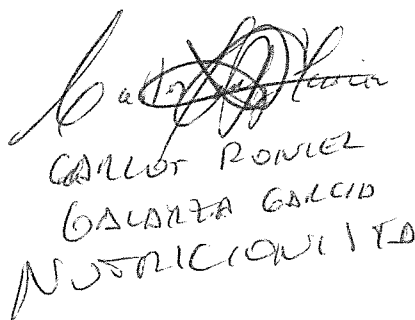 CARLOS RONIER
GALARZA GARCIA
NUTRICIONISTA